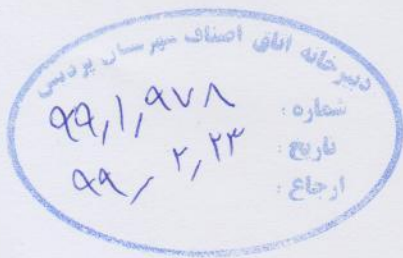 دبیرخانه اتاق اصناف شهرستان پردیس
شماره : ۹۹,۱,۹۷۸
تاریخ : ۹۹, ۲,۲۳
ارجاع :